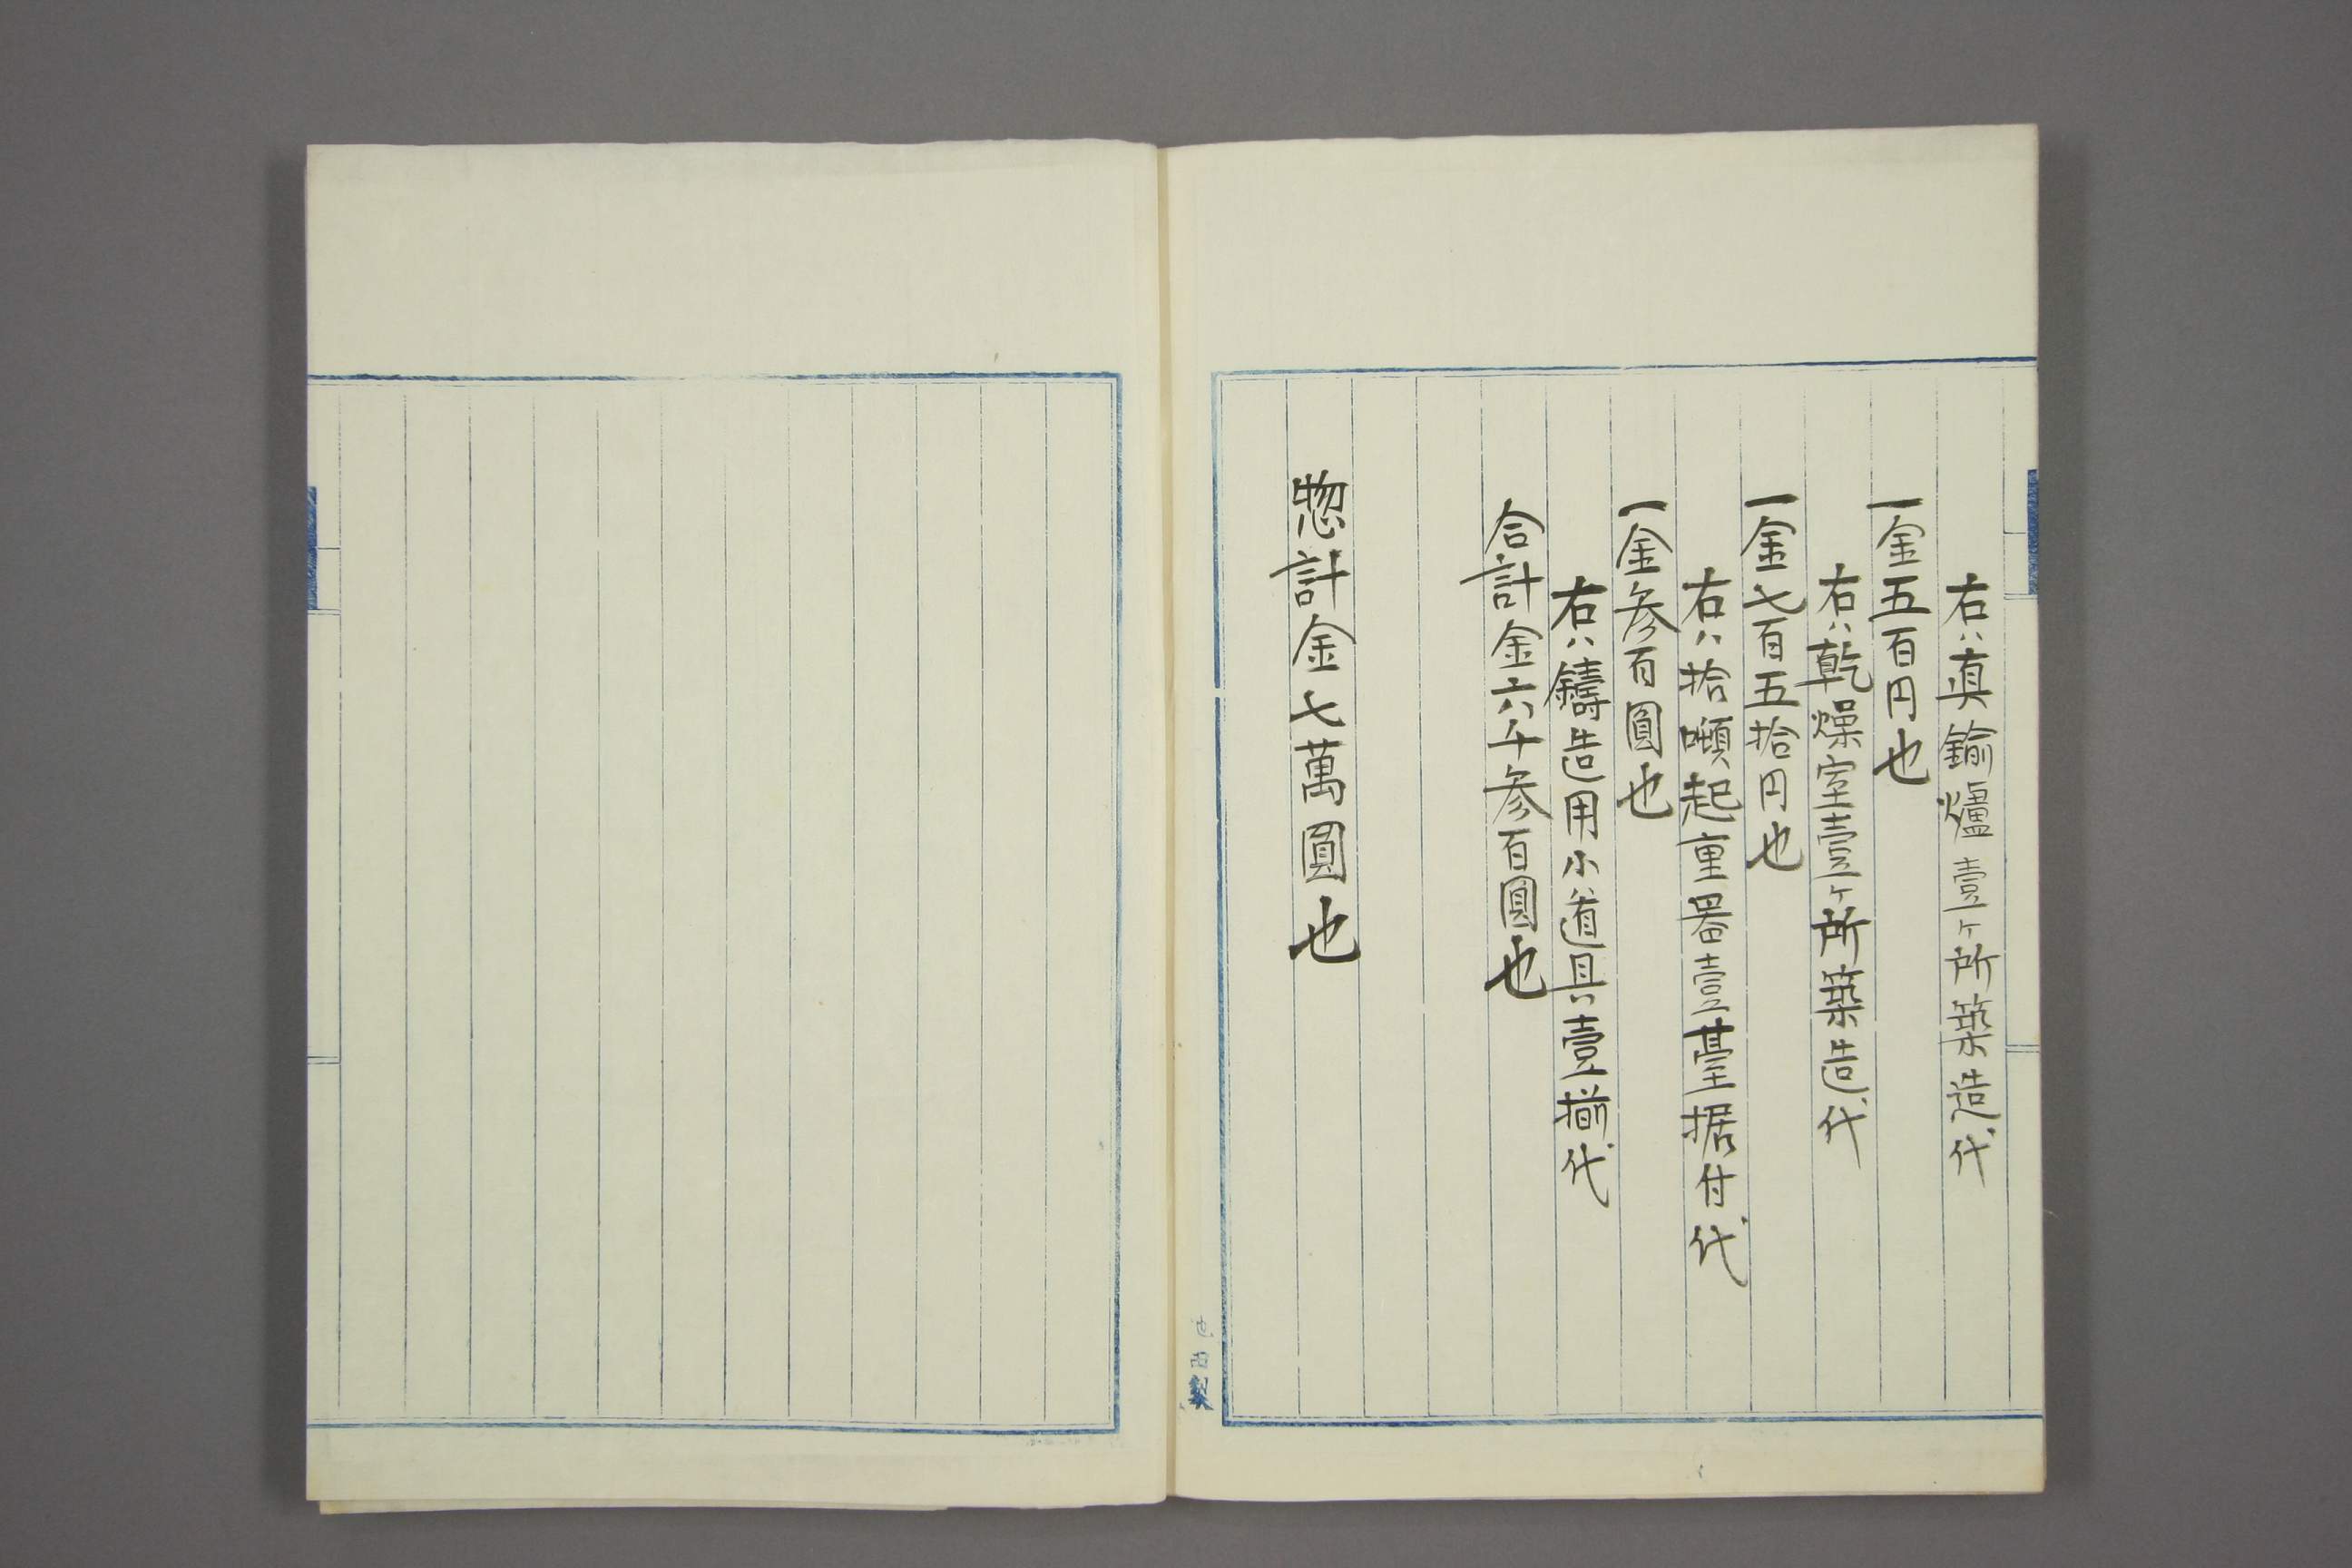 右ハ真鍮爐壹ヶ所築造代
一金五百円也
右ハ乾燥室壹ヶ所築造代
一金七百五拾円也
右ハ拾噸起重器壹臺据付代
一金参百圓也
右ハ鑄造用小道具壹揃代
合計金六千参百圓也
惣計金七萬圓也
製